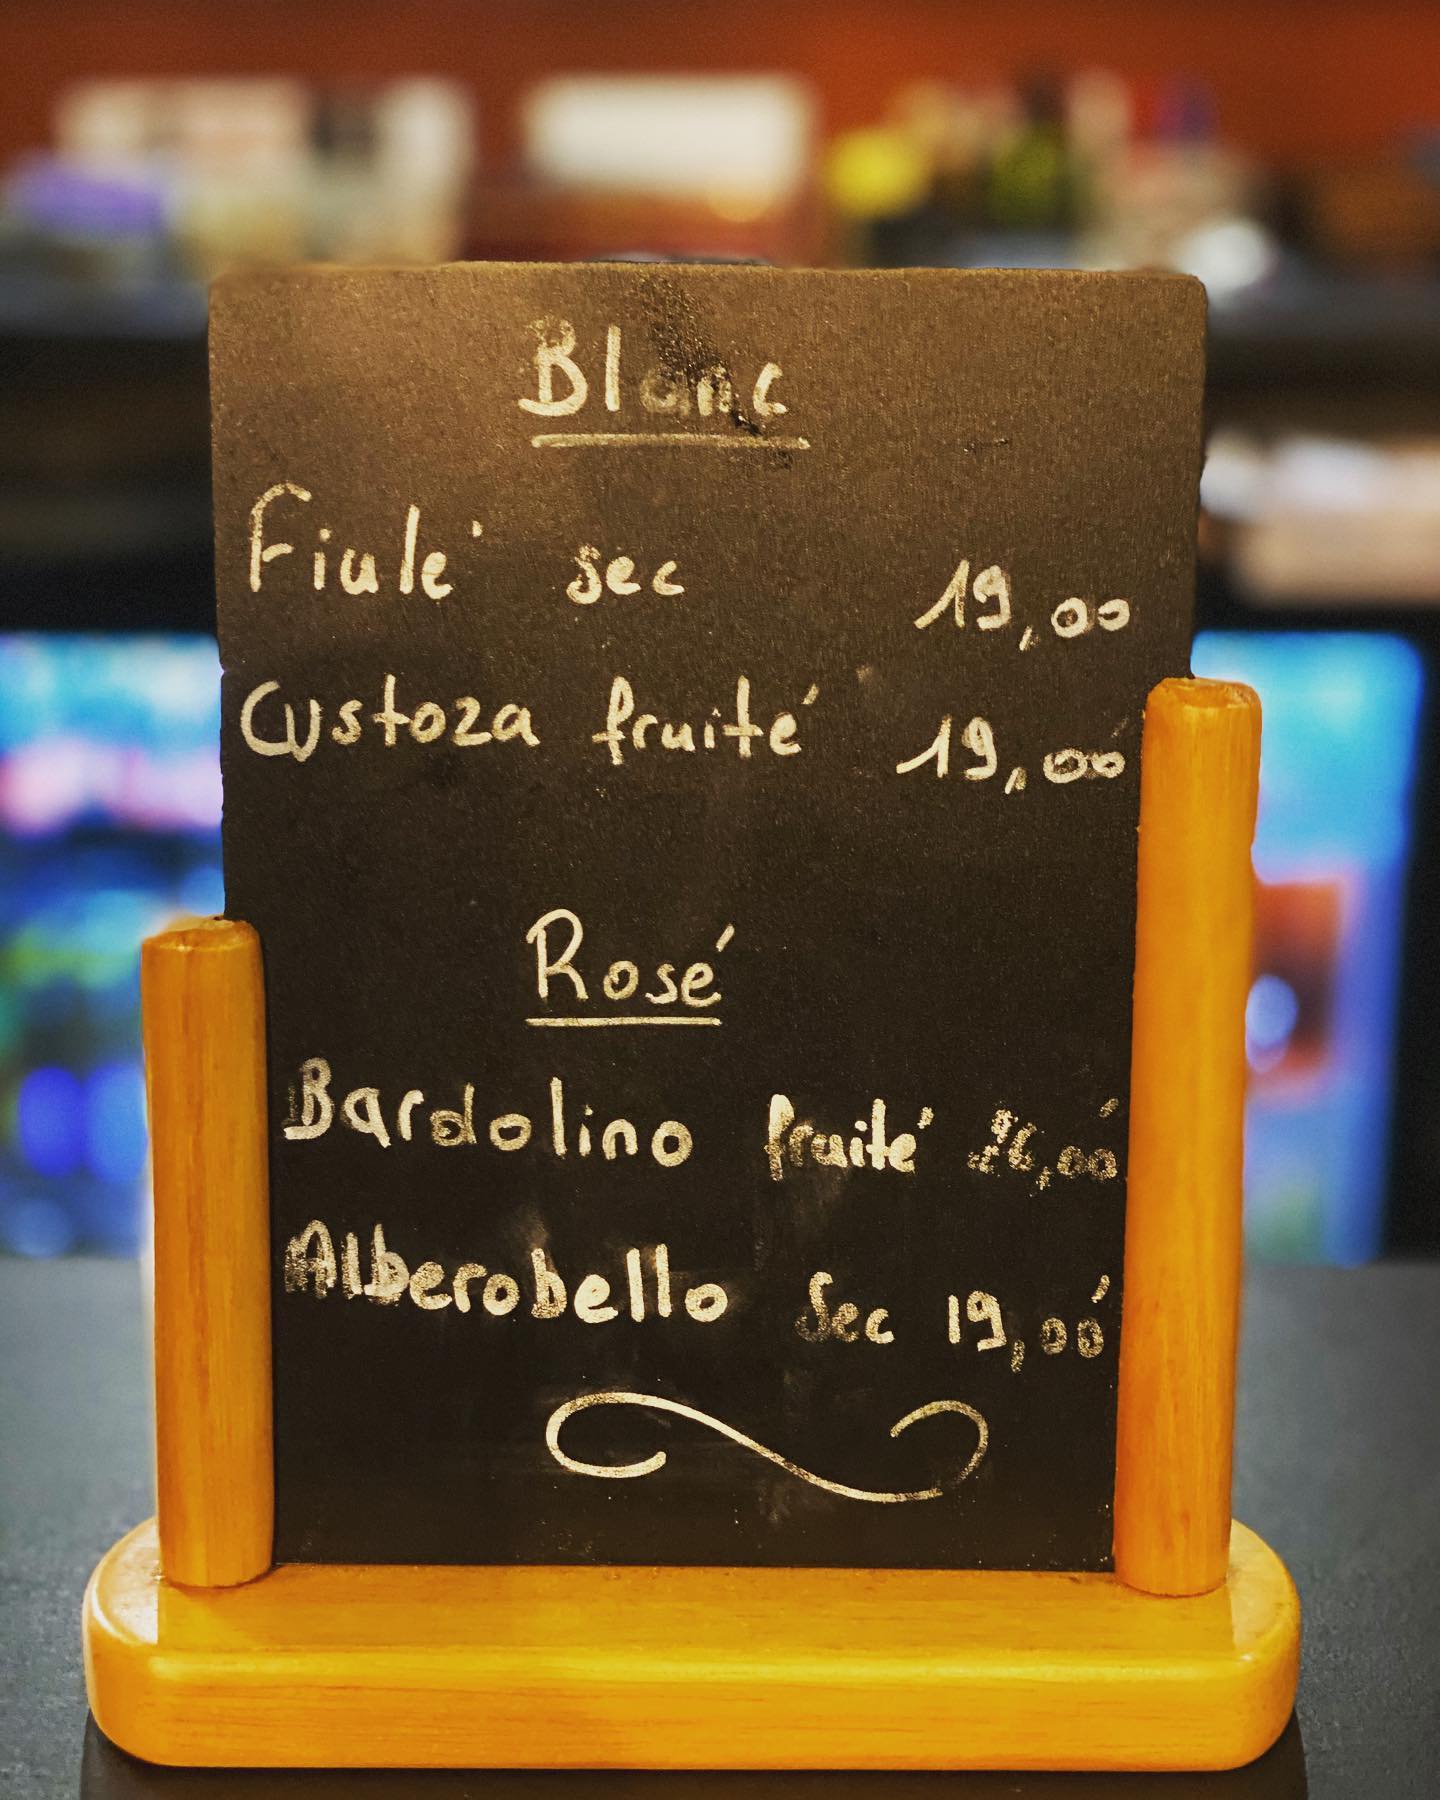 Blanc
Fiulé sec 19,00
Custoza fruité 19,00
Rosé
Bardolino fruité 26,00
Alberobello Sec 19,00